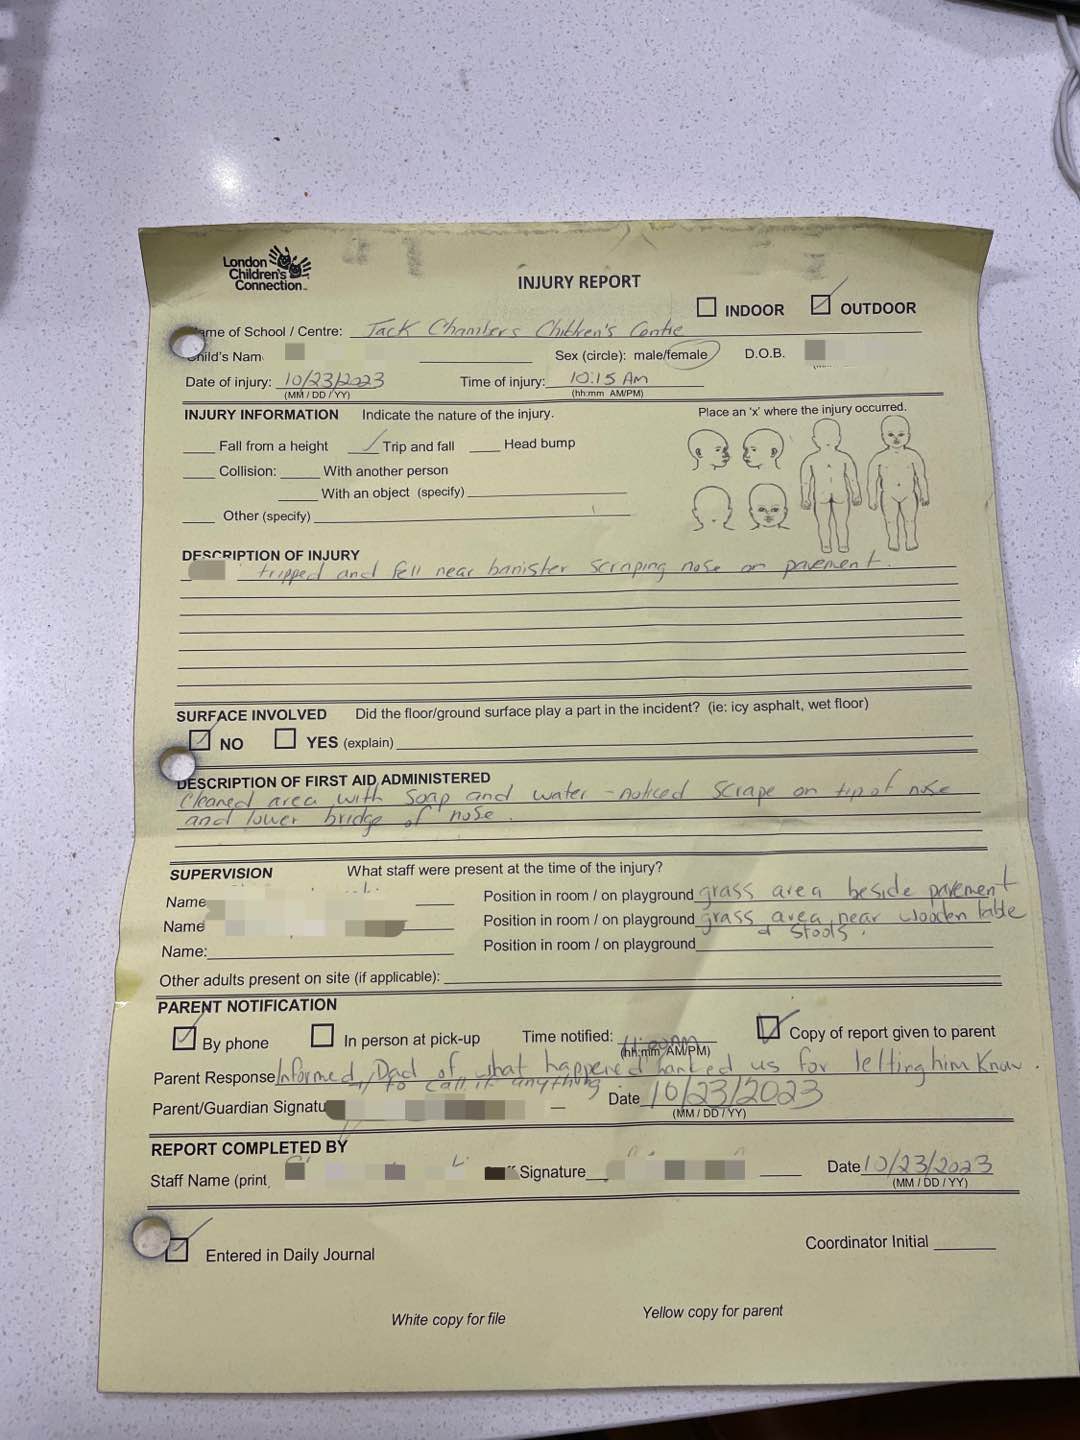 London
Children's
Connection
INJURY REPORT
INDOOR OUTDOOR
ame of School / Centre: Jack Chambers Children's Centre
Child's Nam Sex (circle): male/female D.O.B.
Date of injury: 10/23/2023 Time of injury: 10:15 AM
(MM / DD / YY) (hh:mm AM/PM)
INJURY INFORMATION Indicate the nature of the injury. Place an 'x' where the injury occurred.
Fall from a height Trip and fall Head bump
Collision: With another person
With an object (specify)
Other (specify)
DESCRIPTION OF INJURY
tripped and fell near banister scraping nose on pavement.
SURFACE INVOLVED Did the floor/ground surface play a part in the incident? (ie: icy asphalt, wet floor)
NO YES (explain)
DESCRIPTION OF FIRST AID ADMINISTERED
Cleaned area with soap and water - noticed scrape on tip of nose
and lower bridge of nose.
SUPERVISION What staff were present at the time of the injury?
Name Position in room / on playground grass area beside pavement
Name Position in room / on playground grass area near wooden table
& stools.
Name: Position in room / on playground
Other adults present on site (if applicable):
PARENT NOTIFICATION
By phone In person at pick-up Time notified: Copy of report given to parent
(hh:mm AM/PM)
Parent Response Informed Dad of what happened thanked us for letting him know.
to call if anything
Parent/Guardian Signatu Date 10/23/2023
(MM / DD / YY)
REPORT COMPLETED BY
Staff Name (print Signature Date 10/23/2023
(MM / DD / YY)
Entered in Daily Journal Coordinator Initial
White copy for file Yellow copy for parent